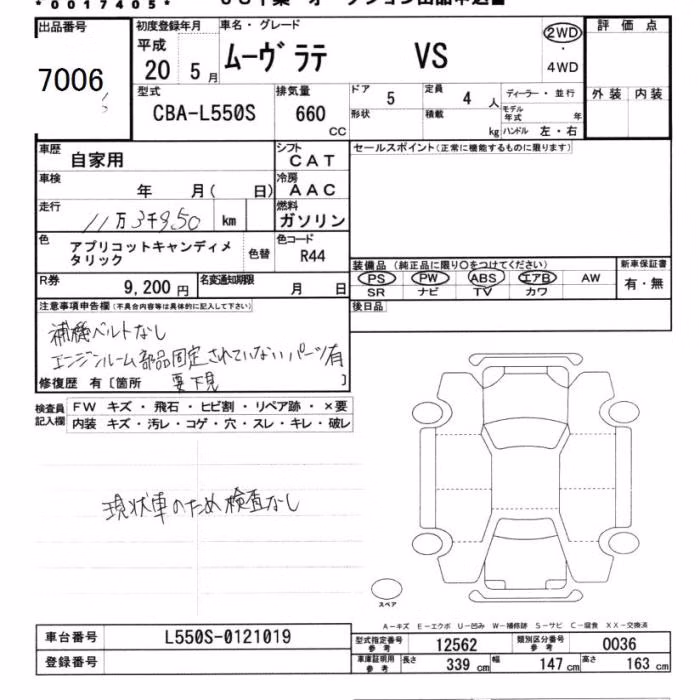 *0017405*
出品番号
7006
初度登録年月
平成
20 5月
車名・グレード
ムーヴラテ VS
2WD
・
4WD
評価点
外装 内装
型式
CBA-L550S
排気量
660
CC
ドア
5
定員
4人
形状
積載
kg
ディーラー・並行
モデル年式 年
ハンドル 左・右
車歴
自家用
シフト
CAT
セールスポイント(正常に機能するものに限ります)
車検
年 月( 日)
冷房
AAC
走行
11万3千950 km
燃料
ガソリン
色
アプリコットキャンディメ
タリック
色替
色コード
R44
装備品(純正品に限り〇をつけてください)
PS PW ABS エアB AW
SR ナビ TV カワ
新車保証書
有・無
R券
9,200円
名変通知期限
月 日
後日品
注意事項申告欄(不具合内容等は具体的に記入して下さい)
補機ベルトなし
エンジンルーム部品固定されていないパーツ有
要下見
修復歴 有〔箇所 〕
検査員
記入欄
FW キズ・飛石・ヒビ割・リペア跡・×要
内装 キズ・汚レ・コゲ・穴・スレ・キレ・破レ
現状車のため検査なし
スペア
A-キズ E-エクボ U-凹み W-補修跡 S-サビ C-腐食 XX-交換済
車台番号
L550S-0121019
登録番号
型式指定番号
参考
12562
類別区分番号
参考
0036
車庫証明用
参考
長さ
339cm
幅
147cm
高さ
163cm